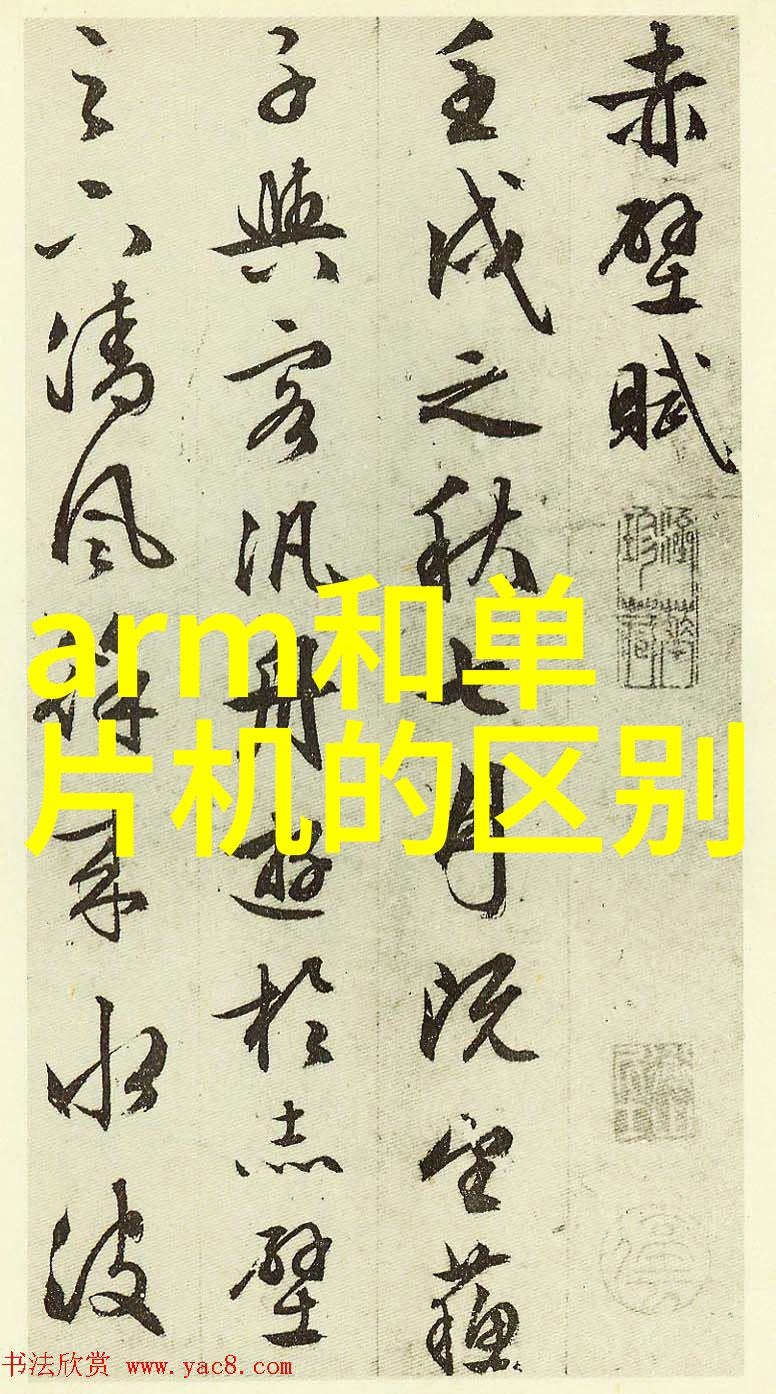 赤壁賦
壬戌之秋七月既望蘇
子與客汎舟遊於赤壁
之下清風徐来水波
arm和单
片机的区别
书法欣赏 www.yac8.com